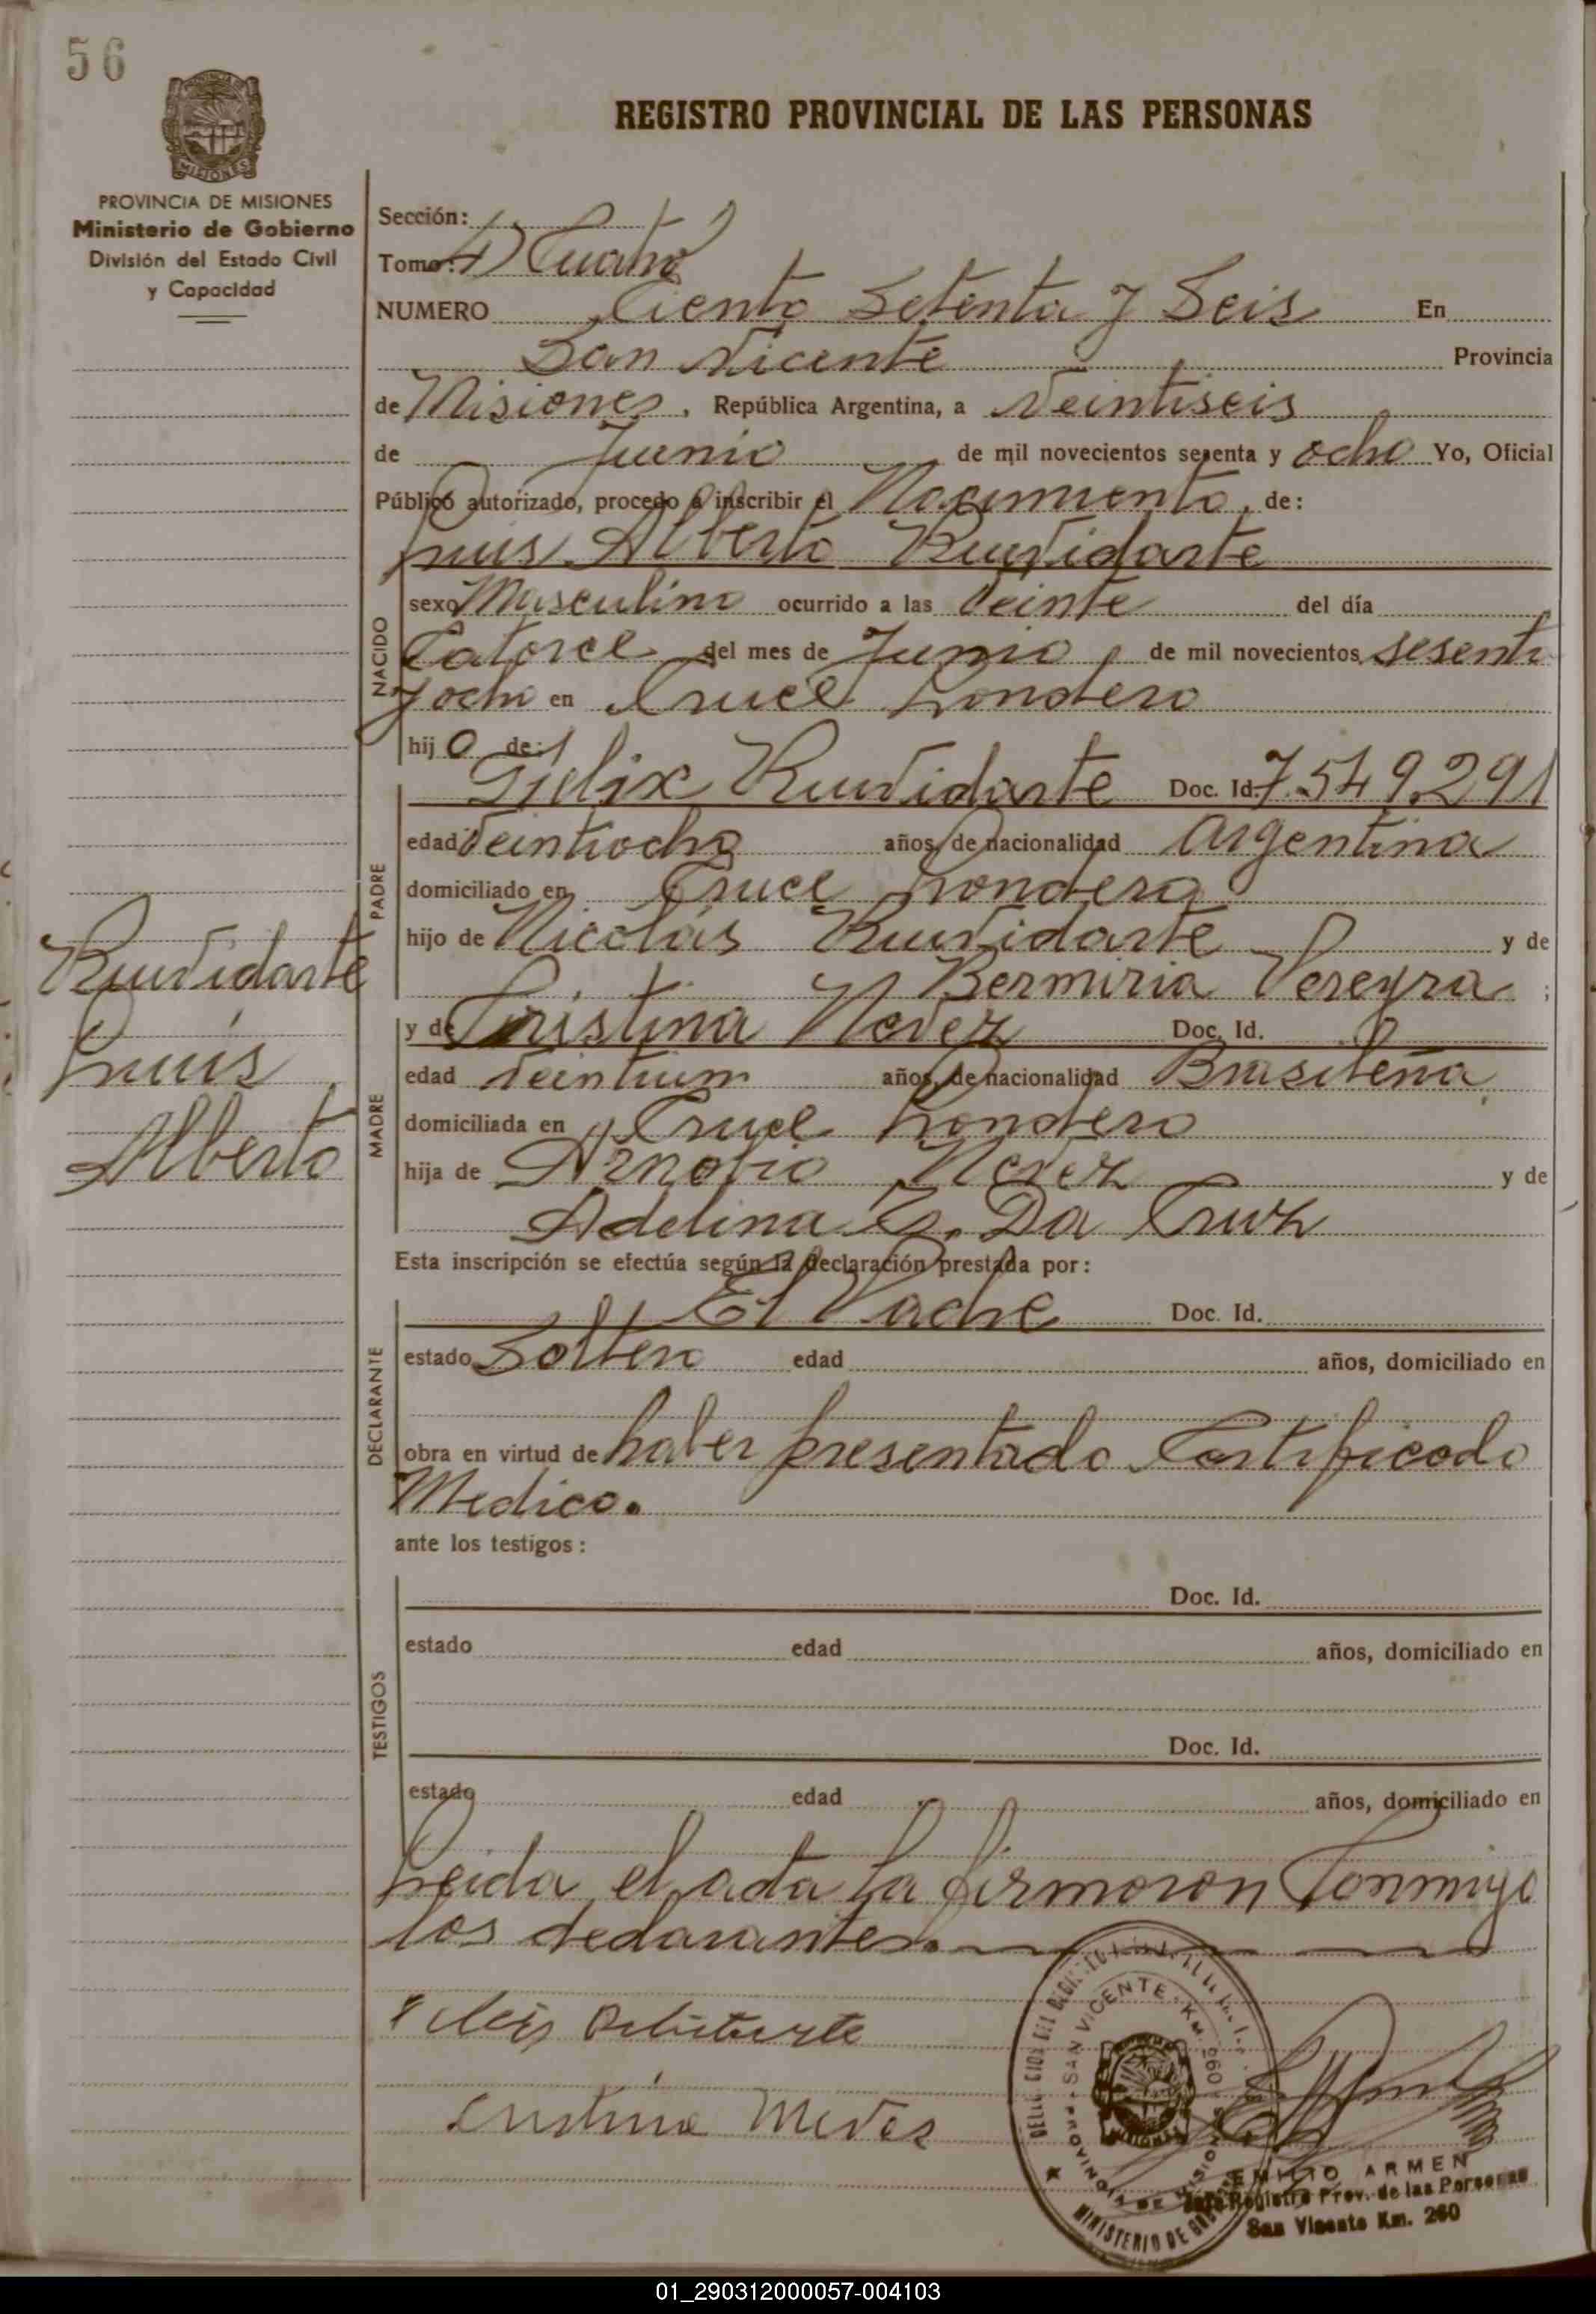 56
PROVINCIA DE MISIONES
Ministerio de Gobierno
División del Estado Civil
y Capacidad
REGISTRO PROVINCIAL DE LAS PERSONAS
Sección:
Tomo: 4) Cuatro
NUMERO Ciento Setenta y Seis En
San Vicente Provincia
de Misiones, República Argentina, a Veintiseis
de Junio de mil novecientos sesenta y ocho Yo, Oficial
Público autorizado, procedo a inscribir el Nacimiento, de:
Luis Alberto Ruividarte
NACIDO
sexo Masculino ocurrido a las Veinte del día
Catorce del mes de Junio, de mil novecientos sesenta
y ocho en Cruce Londero
hijo de:
PADRE
Felix Ruividarte Doc. Id. 7.549.291
edad Veintiocho años, de nacionalidad Argentina
domiciliado en Cruce Londero
hijo de Nicolás Ruividarte y de
Bermiria Pereyra ;
MADRE
y de Cristina Nevez Doc. Id.
edad Veintiun años, de nacionalidad Brasileña,
domiciliada en Cruce Londero
hija de Nevez y de
Adelina Da Cruz
Esta inscripción se efectúa según la declaración prestada por:
DECLARANTE
El Padre Doc. Id.
estado Soltero edad años, domiciliado en
obra en virtud de haber presentado Certificado
Medico.
ante los testigos:
TESTIGOS
Doc. Id.
estado edad años, domiciliado en
Doc. Id.
estado edad años, domiciliado en
Leida el acta la firmaron Conmigo
los declarantes.
Ruividarte
Luis
Alberto
SAN VICENTE - KM. 260
PROVINCIA DE MISIONES
MINISTERIO DE
EMILIO ARMEN
Jefe Registro Prov. de las Personas
San Vicente Km. 260
01_290312000057-004103